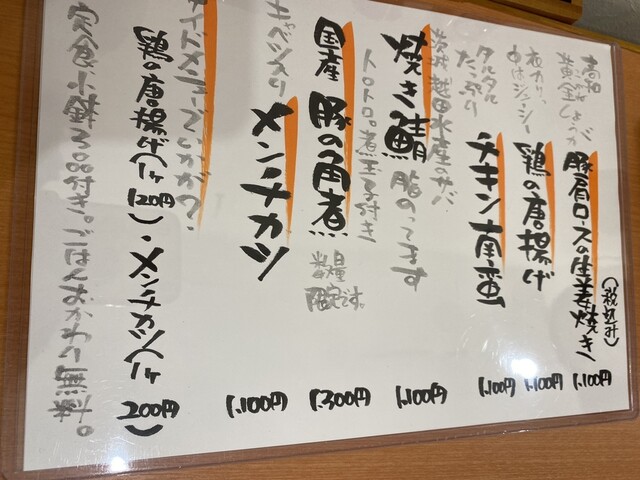 高知
黄金しょうが
豚肩ロースの生姜焼き
(税込み)
1.100円
中はジューシー
鶏の唐揚げ
1.100円
タルタル
たっぷり
チキン南蛮
1.100円
茨城 越田水産のサバ
焼き鯖 脂のってます
1.100円
トロトロ。煮玉子付き
国産 豚の角煮
限定です。
1.300円
キャベツ入り
メンチカツ
1.100円
サイドメニューでいかが?
鶏の唐揚げ(1ケ 120円)・メンチカツ(1ケ 200円)
定食、小鉢3品付き。ごはんおかわり無料。